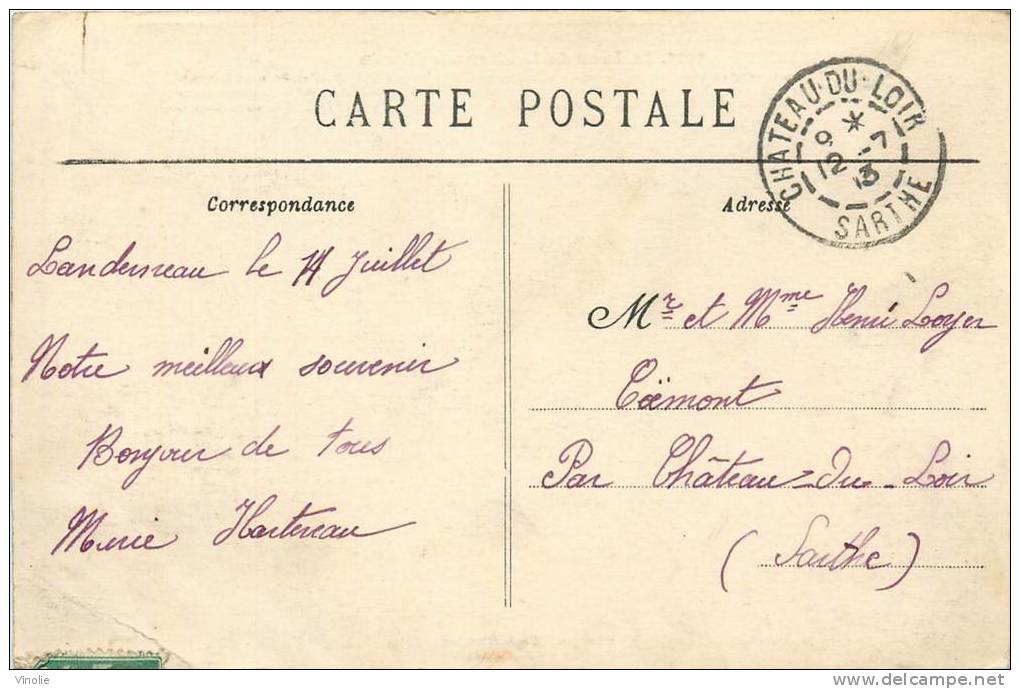 CARTE POSTALE
CHATEAU-DU-LOIR
9 * -7
12 13
SARTHE
Correspondance
Adresse
Landerneau le 14 Juillet
Mr et Mme Henri Loyer
Notre meilleur souvenir
Coëmont
Bonjour de tous
Par Château-du-Loir
Marie
(Sarthe)
Vinolie
delcampe.net